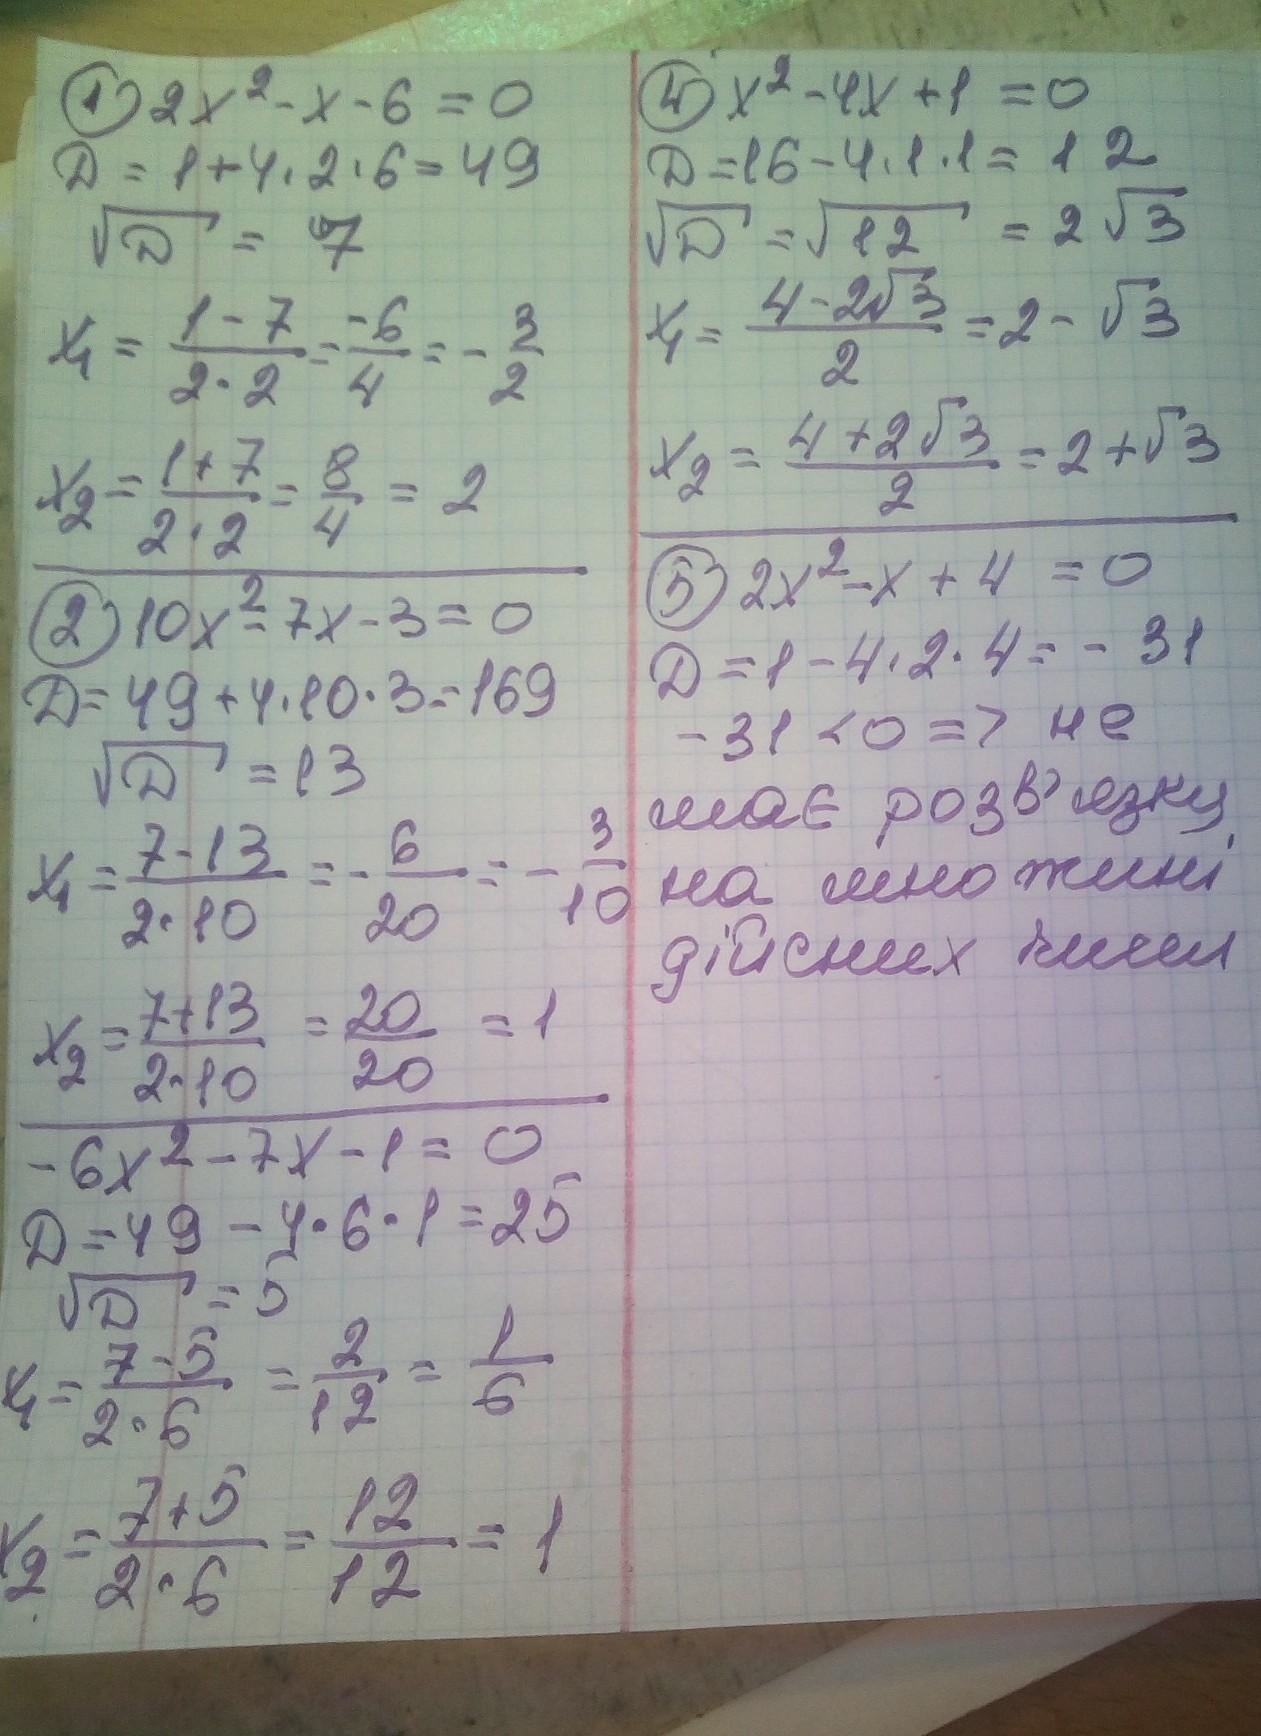 ① 2x² - x - 6 = 0
D = 1 + 4 · 2 · 6 = 49
√D = 7
x₁ = (1 - 7)/(2 · 2) = -6/4 = - 3/2
x₂ = (1 + 7)/(2 · 2) = 8/4 = 2
② 10x² - 7x - 3 = 0
D = 49 + 4 · 10 · 3 = 169
√D = 13
x₁ = (7 - 13)/(2 · 10) = - 6/20 = - 3/10
x₂ = (7 + 13)/(2 · 10) = 20/20 = 1
-6x² - 7x - 1 = 0
D = 49 - 4 · 6 · 1 = 25
√D = 5
x₁ = (7 - 5)/(2 · 6) = 2/12 = 1/6
x₂ = (7 + 5)/(2 · 6) = 12/12 = 1
④ x² - 4x + 1 = 0
D = 16 - 4 · 1 · 1 = 12
√D = √12 = 2√3
x₁ = (4 - 2√3)/2 = 2 - √3
x₂ = (4 + 2√3)/2 = 2 + √3
⑤ 2x² - x + 4 = 0
D = 1 - 4 · 2 · 4 = - 31
- 31 < 0 => не
має розв'язку
на множині
дійсних чисел